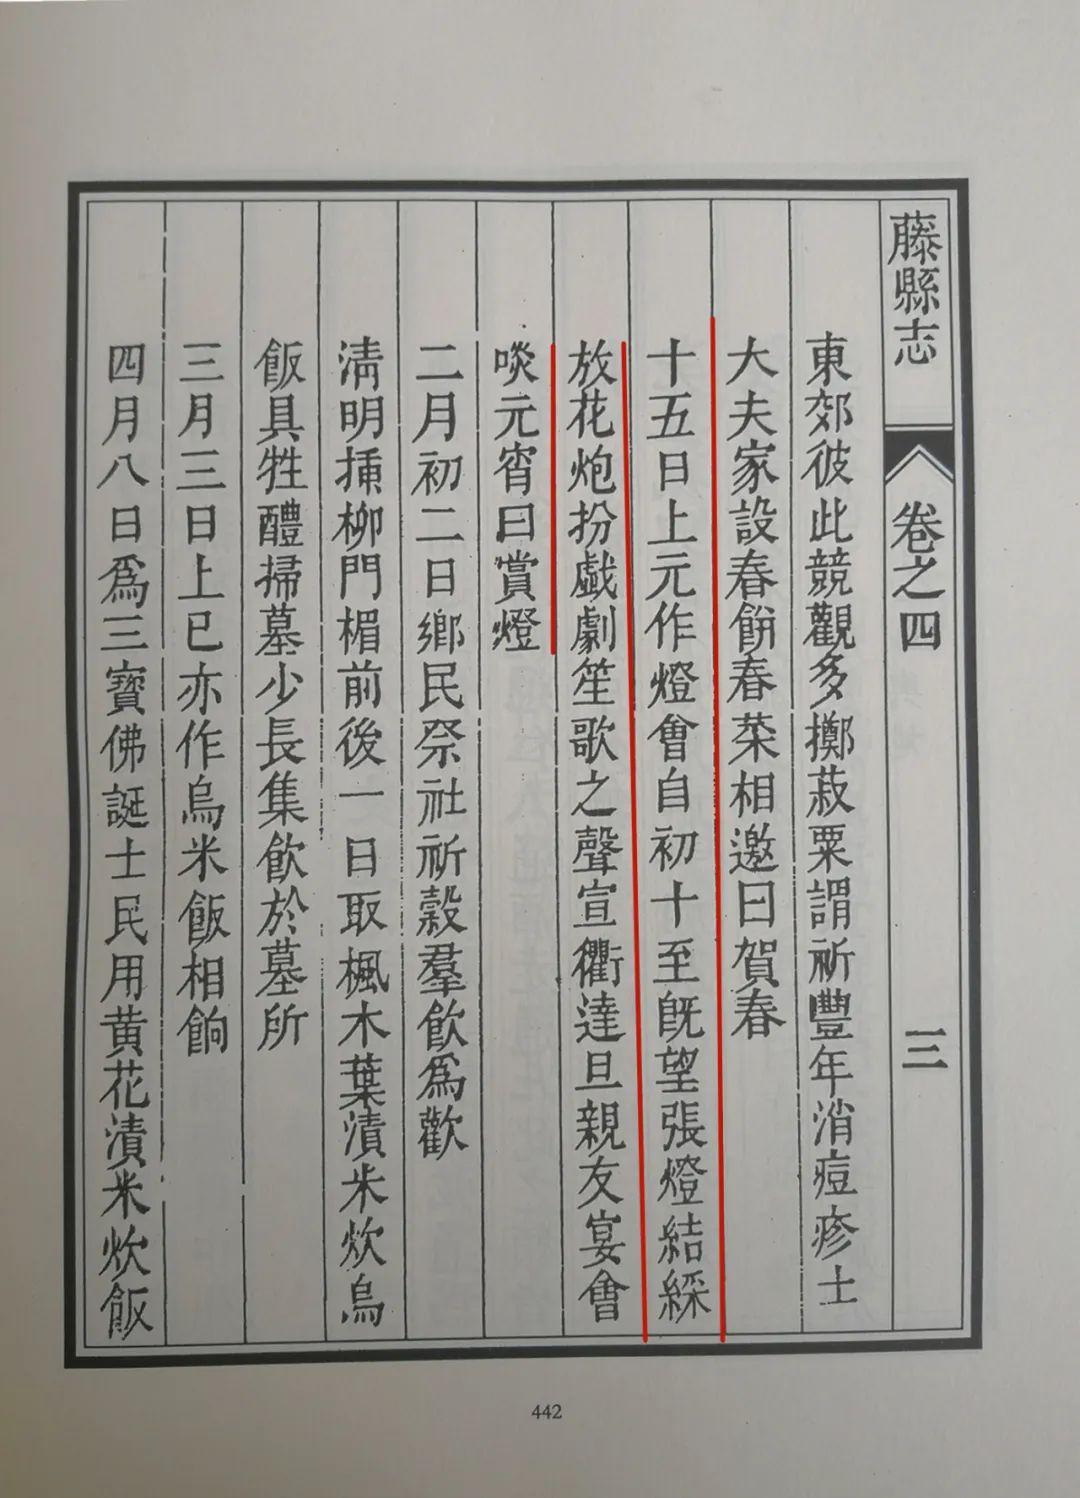 藤縣志 卷之四 三
東郊彼此競觀多擲菽粟謂祈豐年消痘疹士
大夫家設春餅春菜相邀曰賀春
十五日上元作燈會自初十至旣望張燈結綵
放花炮扮戲劇笙歌之聲宣衢達旦親友宴會
啖元宵曰賞燈
二月初二日鄉民祭社祈穀羣飲爲歡
淸明揷柳門楣前後一日取楓木葉漬米炊烏
飯具牲醴掃墓少長集飲於墓所
三月三日上巳亦作烏米飯相餉
四月八日爲三寶佛誕士民用黃花漬米炊飯
442